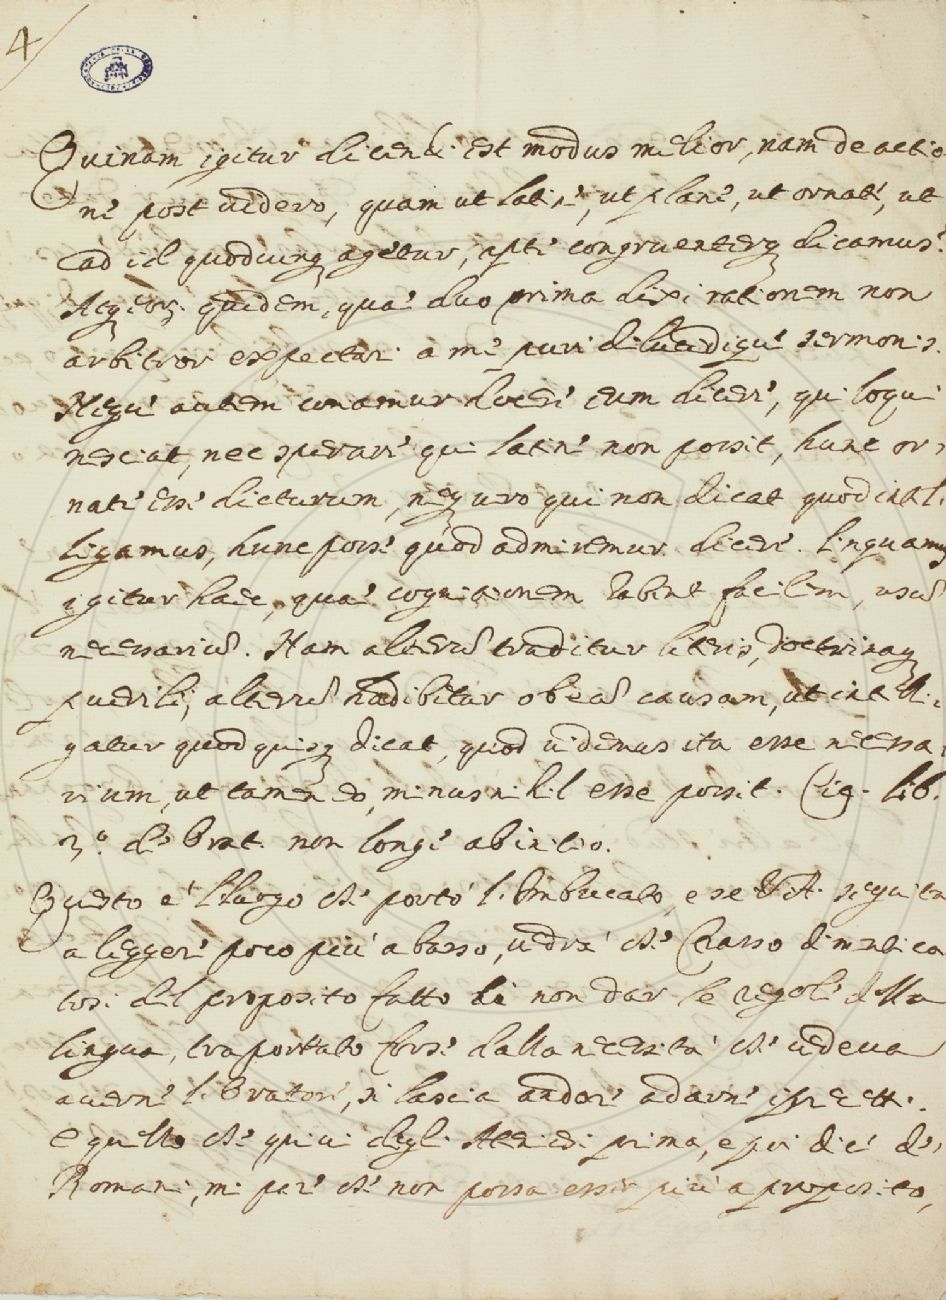 4
Quinam igitur dicendi est modus melior, nam de actio
ne post videro, quam ut latiné, ut plané, ut ornaté, ut
ad id quodcunq agetur, apté congruenterq dicamus?
Atq eor. quidem, quae duo prima dixi rationem non
arbitror expectari a me puri dilucidique sermonis.
Neque autem conamur docere eum dicere, qui loqui
nesciat, nec sperare qui latine non possit, hunc or
nate esse dicturum, neq vero qui non dicat quod intel.
ligamus, hunc posse quod admiremur dicere. linquamus
igitur haec, quae cognitionem habent facilem, usus
necessarius. Nam alterus traditur literis, doctrinaq
puerili, alterus hadibitur ob eas causam, ut intelli.
gatur quod quisq dicat, quod videmus ita esse necessa
rium, ut tamen eo, minus nihil esse possit. Cig. lib.
3.º de Orat. non longe abinitio.
Questo e' l luogo che portò l'Imbucato, e se V.A. seguita
a leggere poco più abasso, vedra che Crasso dimentica
tosi del proposito fatto di non dar le regole della
lingua, traportato forse dalla necessità che vedeva
averne l'Oratore, si lascia andare adarne i precetti.
E quello che quivi degli Ateniesi prima, e poi dice de'
Romani, mi pare che non possa esser più a proposito,